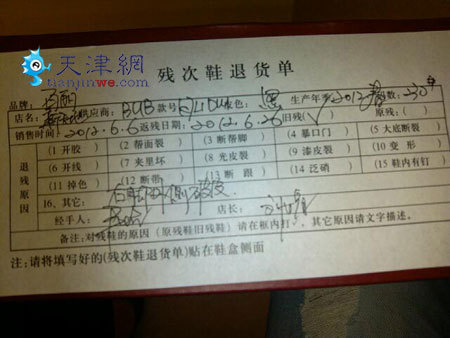 天津網
tianjinwe.com
残次鞋退货单
品牌：百丽 供应商：BUB 款号 色：黑 生产年季 2012 码数：230#
店名：
销售时间：2012.6.6 返残日期：2012.6.26 旧残(√ 原残：( )
退残原因
(1 开胶 ) (2 帮面裂 ) (3 断帮脚 ) (4 暴口门 ) (5 大底断裂 )
(6 开线 ) (7 夹里坏 ) (8 光皮裂 ) (9 漆皮裂 ) (10 变 形 )
(11 掉色 ) (12 断带 ) (13 断 跟 ) (14 泛硝 ) (15 鞋内有钉 )
16、其它：
经手人： 店长：
备注：对残鞋的原因（原残鞋旧残鞋）请在框内打 ，其它原因请文字描述。
注：请将填写好的(残次鞋退货单)贴在鞋盒侧面